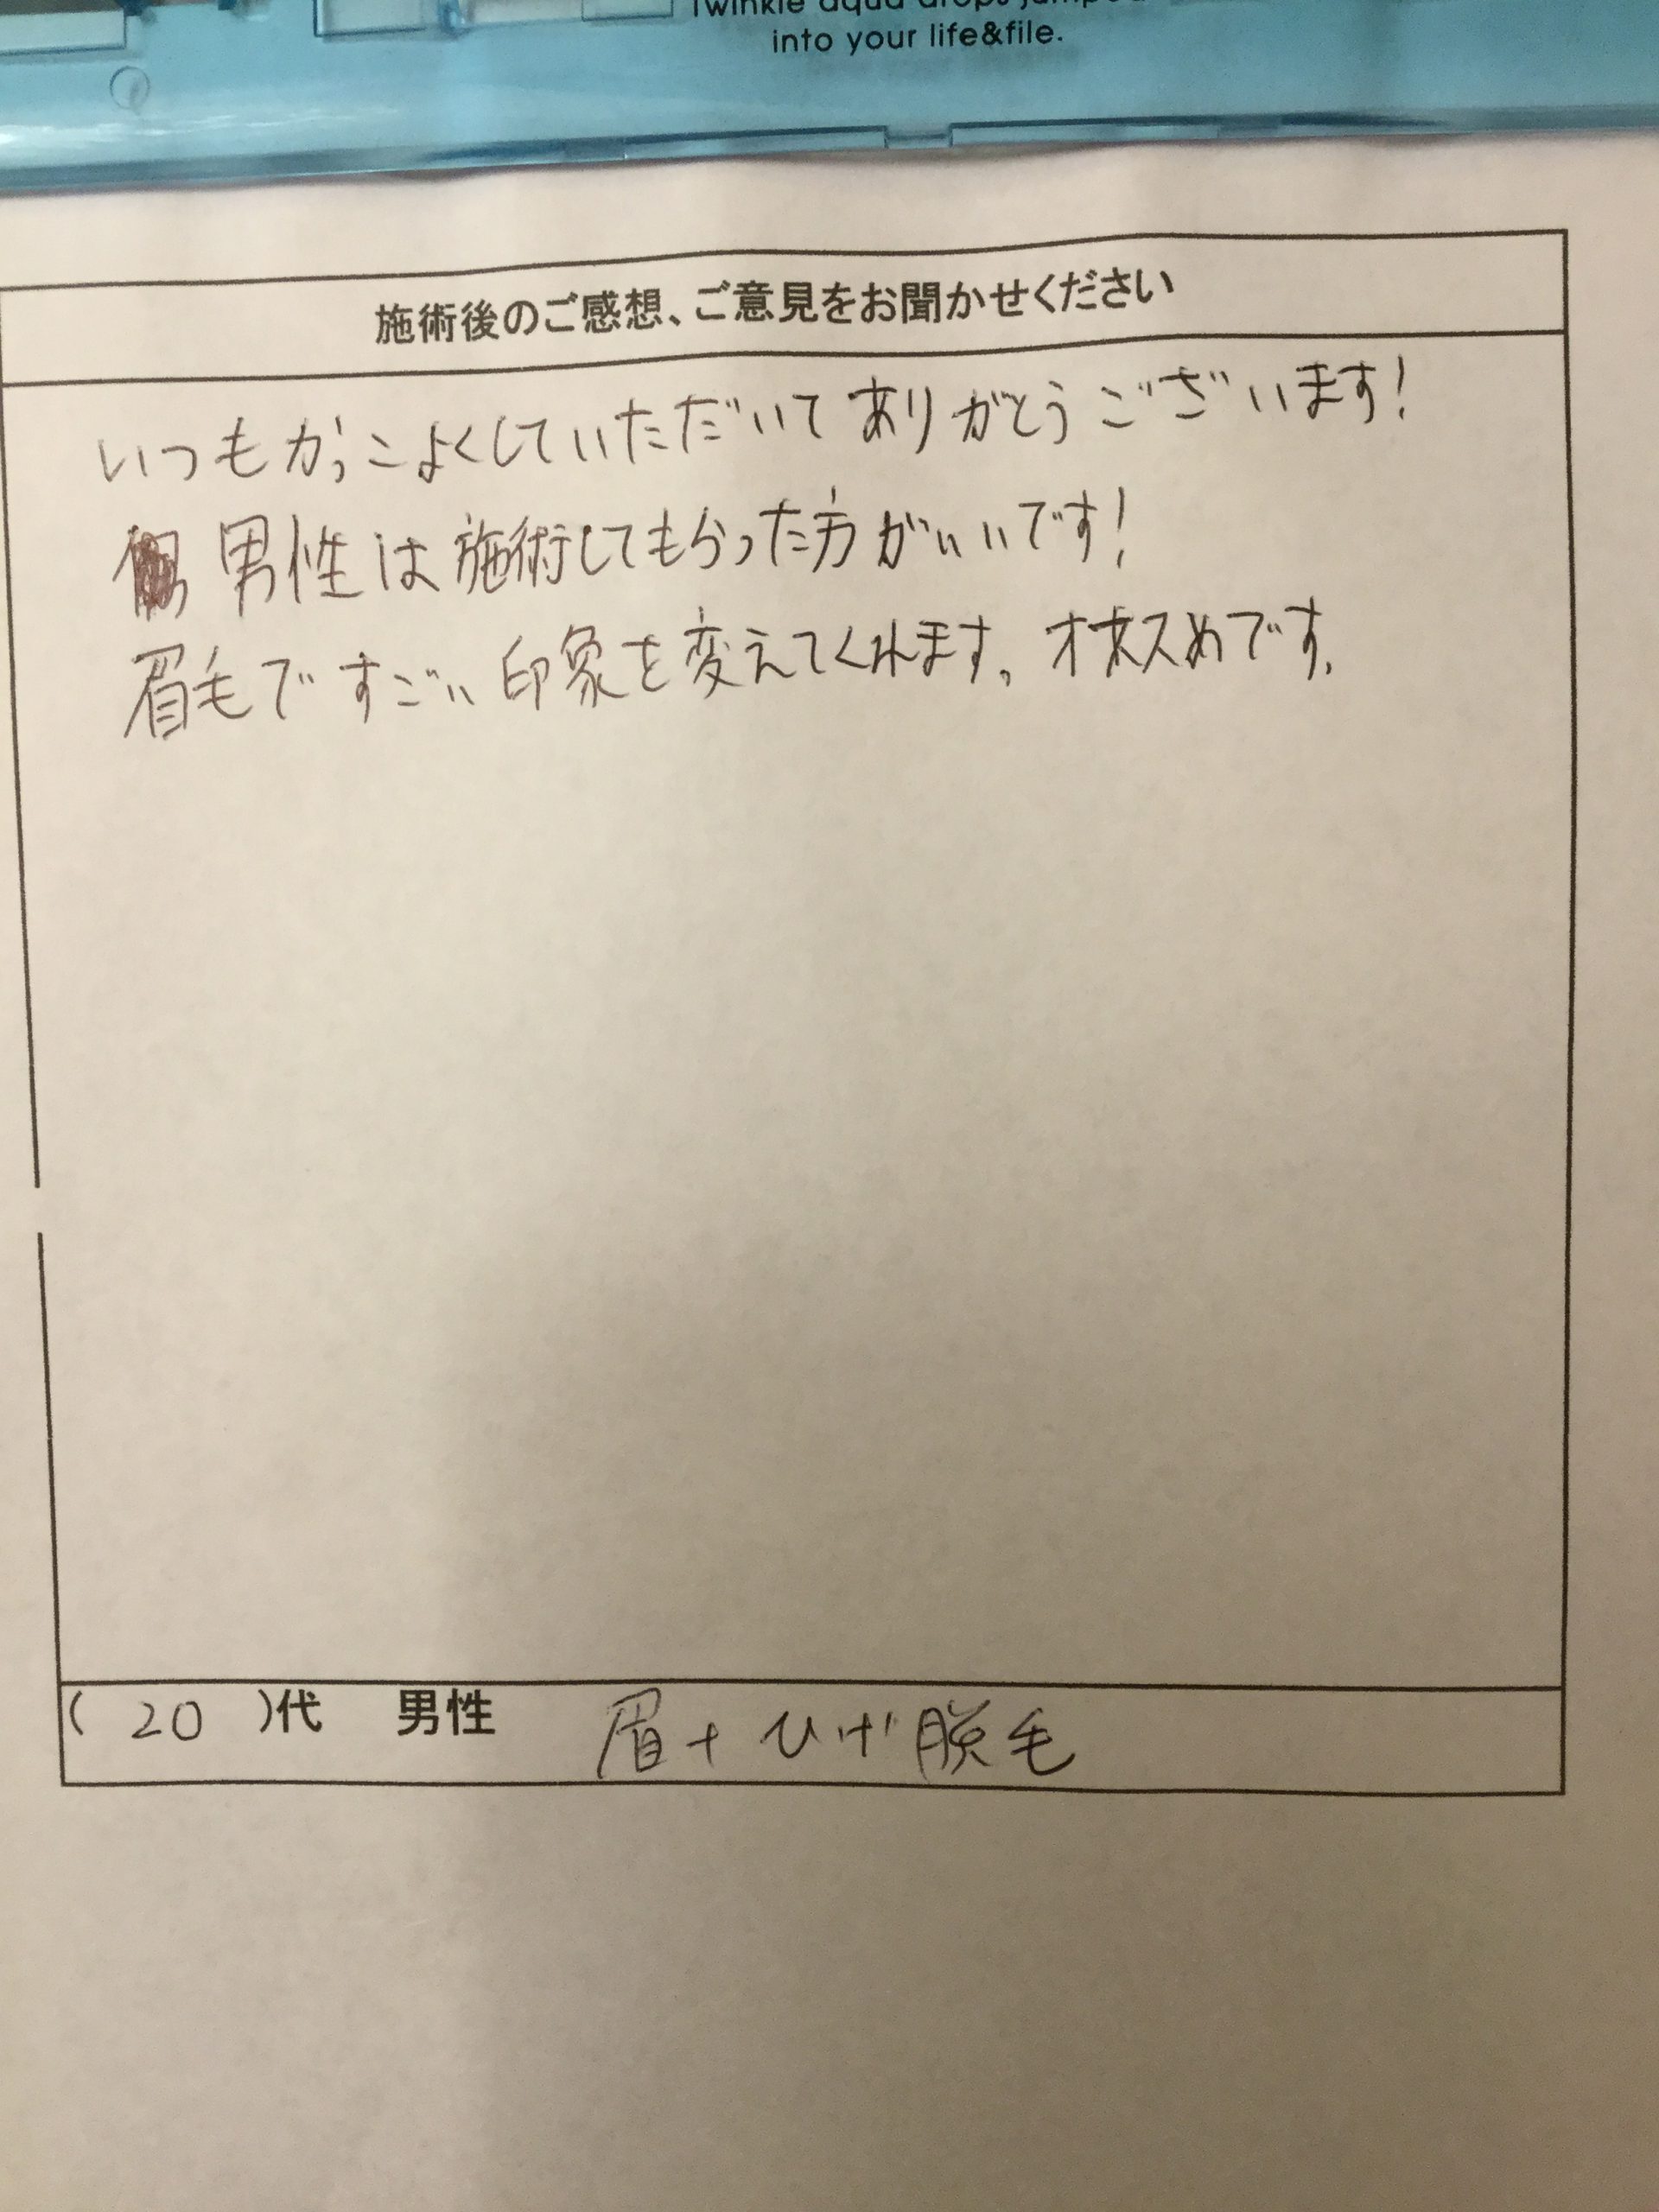 into your life&file.
施術後のご感想、ご意見をお聞かせください
いつもかっこよくしていただいてありがとうございます!
男性は施術してもらった方がいいです!
眉毛ですごい印象を変えてくれます。オススメです。
( 20 )代 男性 眉+ひげ脱毛